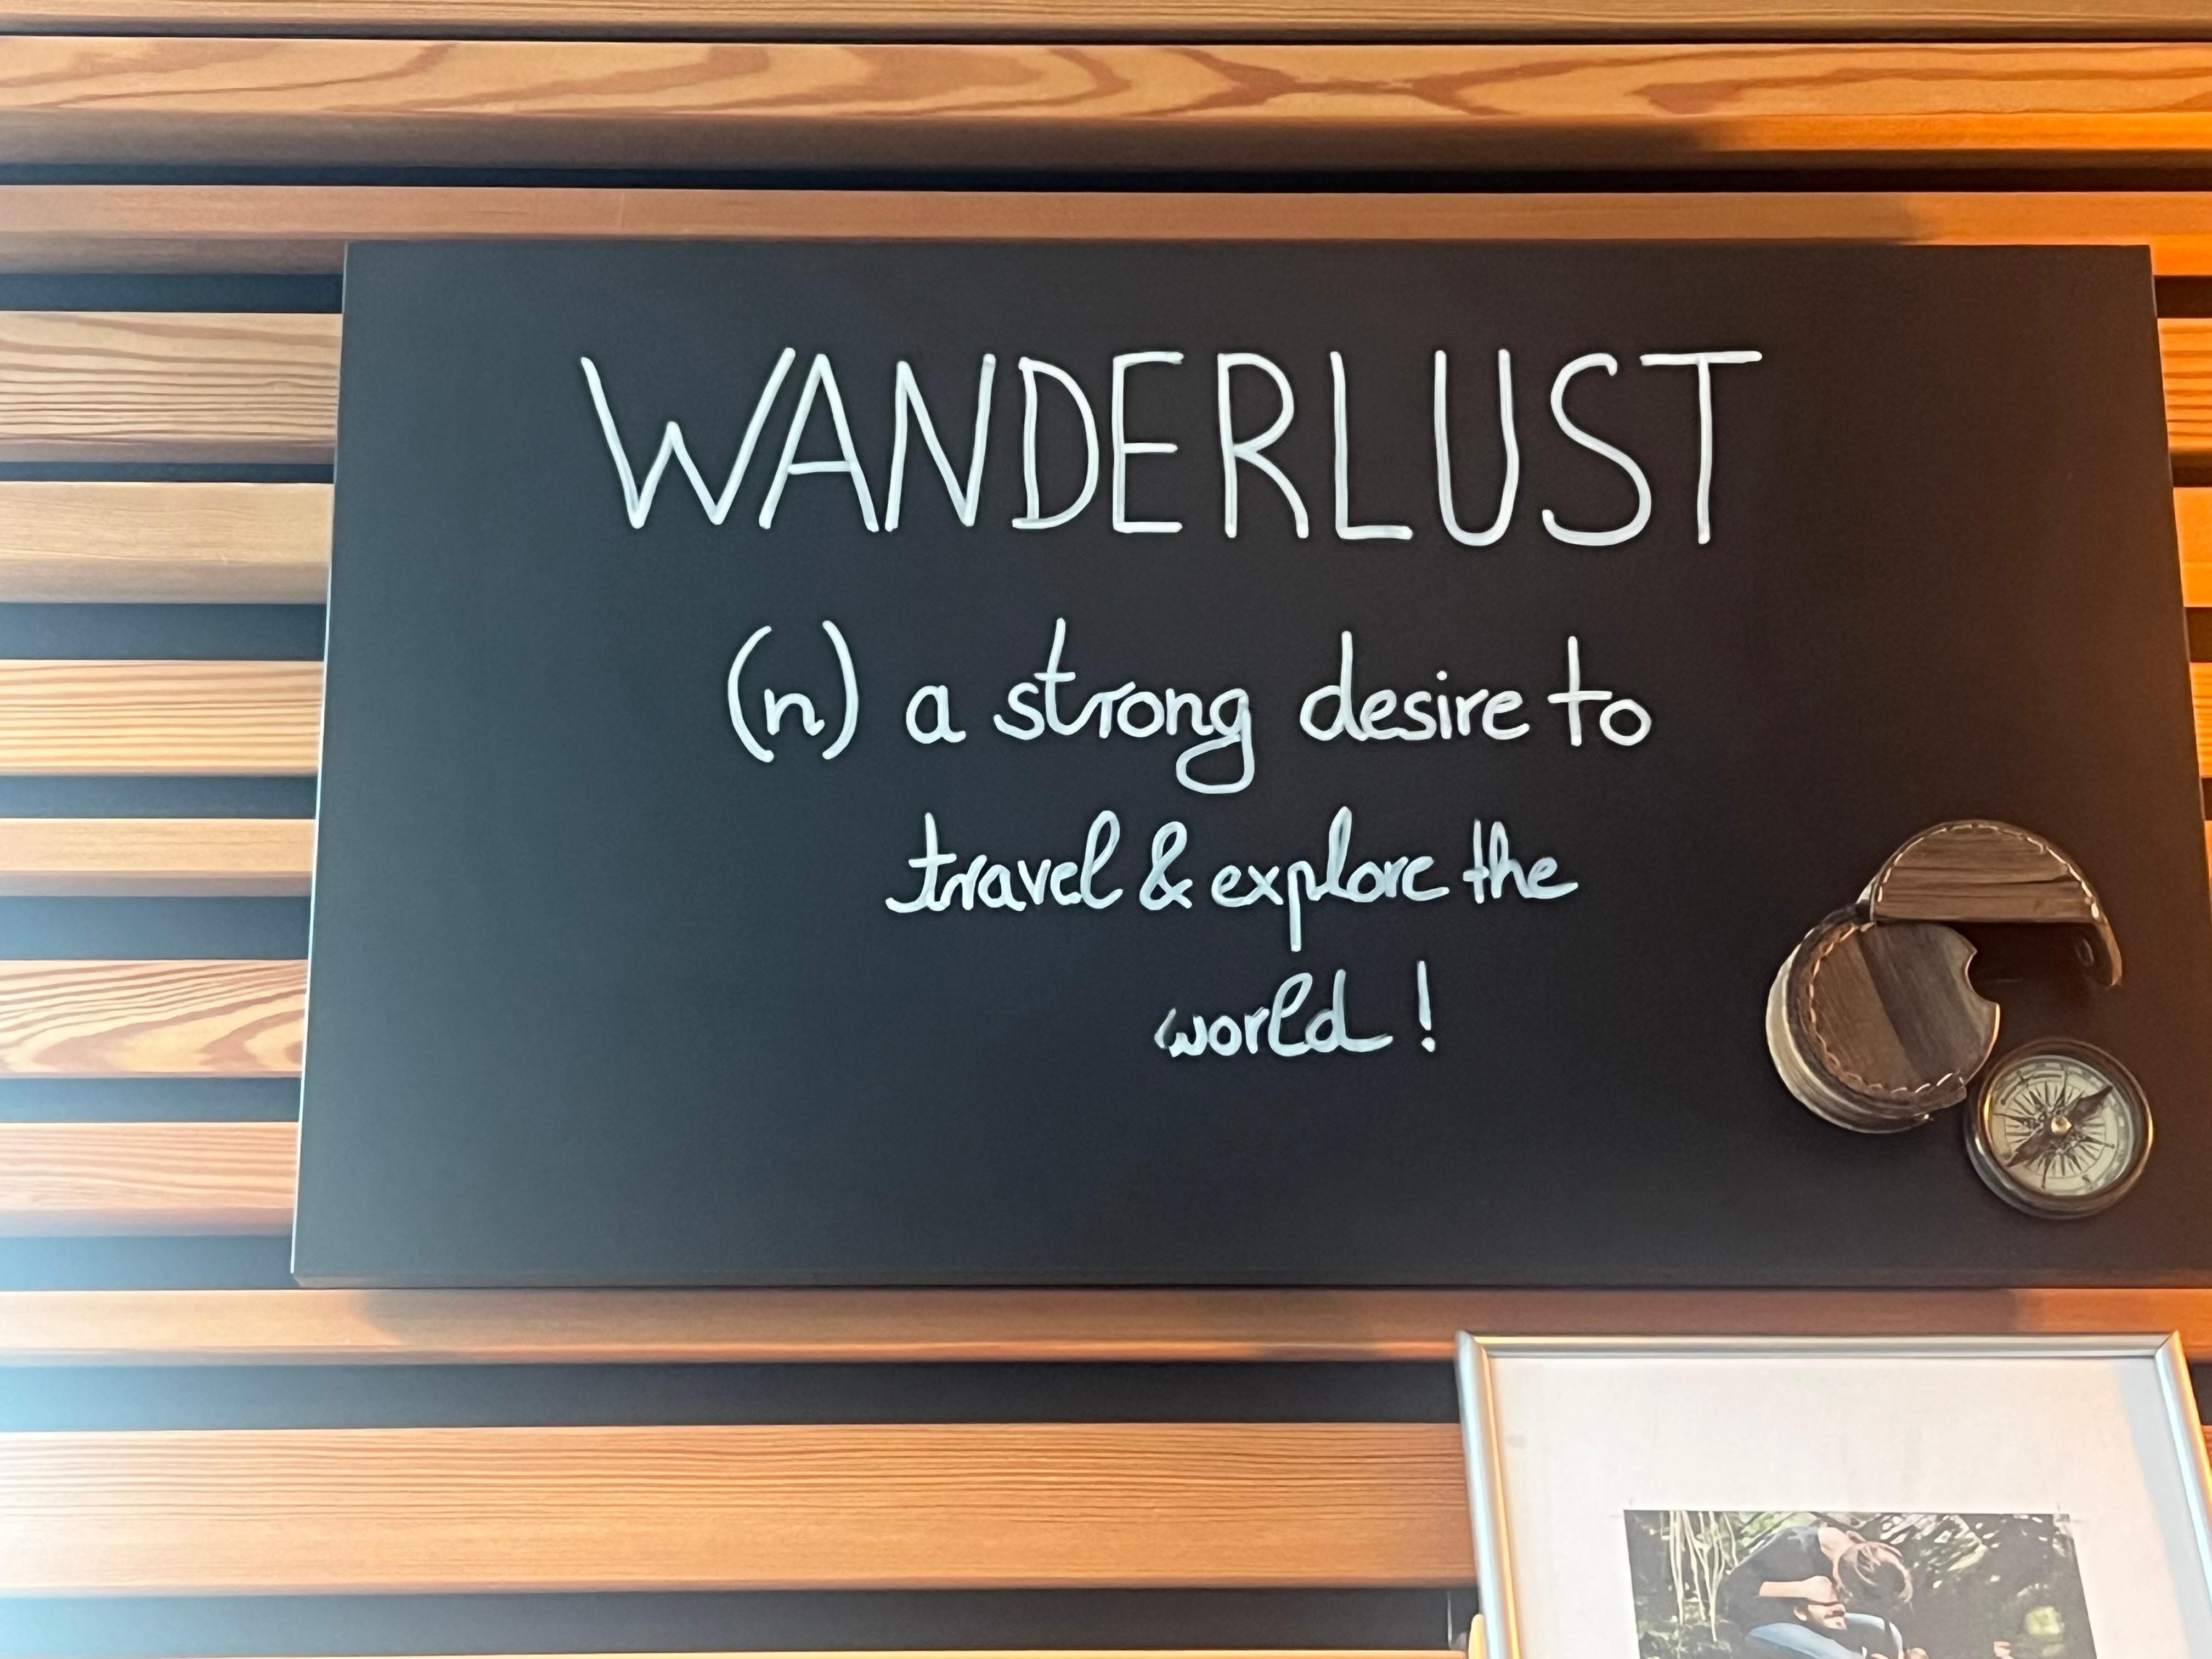 WANDERLUST
(n) a strong desire to
travel & explore the
world!